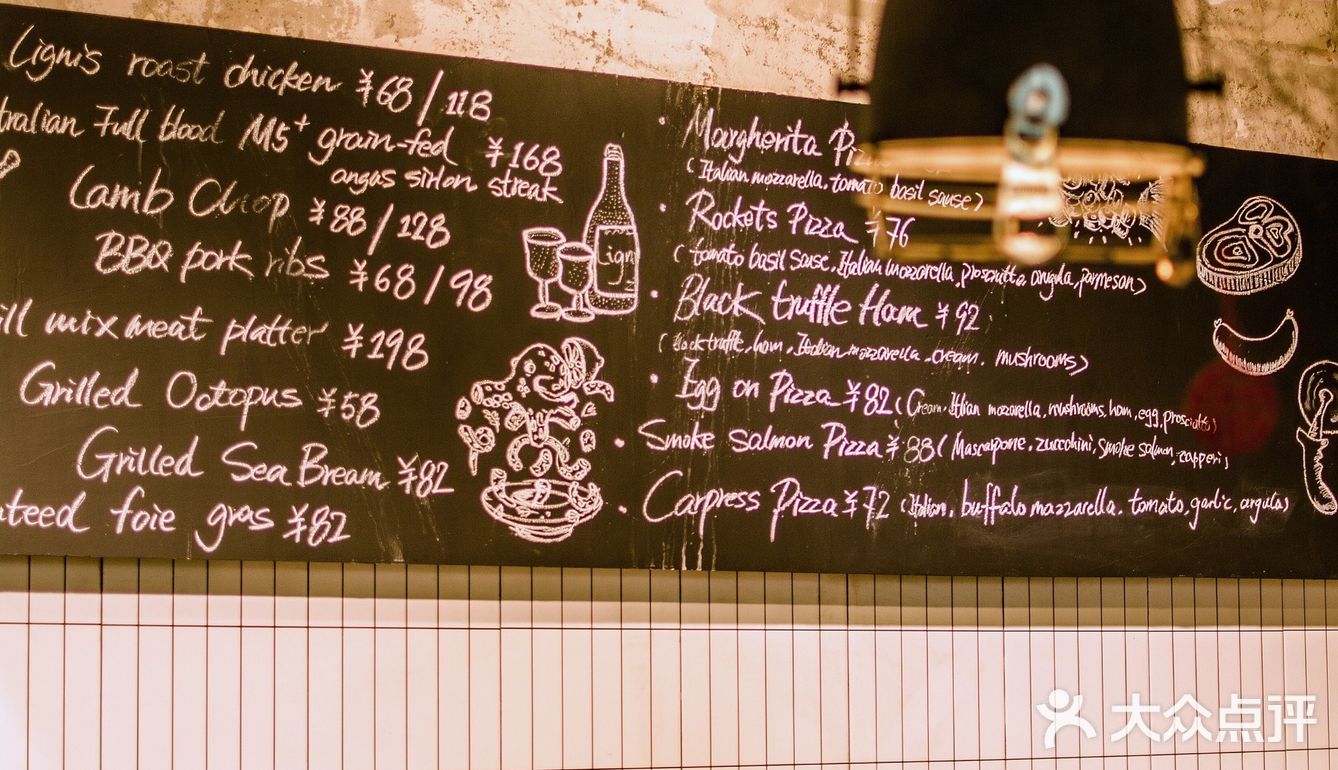 Lignis roast chicken ¥68/118
tralian Full blood M5+ grain-fed ¥168
angas sirlon streak
Lamb Chop ¥88/128
BBQ pork ribs ¥68/98
ill mix meat platter ¥198
Grilled Octopus ¥58
Grilled Sea Bream ¥82
teed foie gras ¥82
Lign
Margherita Pizza
(Italian mozzarella, tomato basil sause)
Rockets Pizza ¥76
(tomato basil sause, Italian mozzarella, prosciutto, arugula, parmesan)
Black truffle Ham ¥92
(black truffle, ham, Italian mozzarella, cream, mushrooms)
Egg on Pizza ¥82 (Cream, Itlian mozarella, mushrooms, ham, egg, prosciutto)
Smoke salmon Pizza ¥88 (Mascarpone, zucchini, smoke salmon, capperi)
Carpress Pizza ¥72 (Itialian, buffalo mozzarella, tomato, garlic, argula)
大众点评